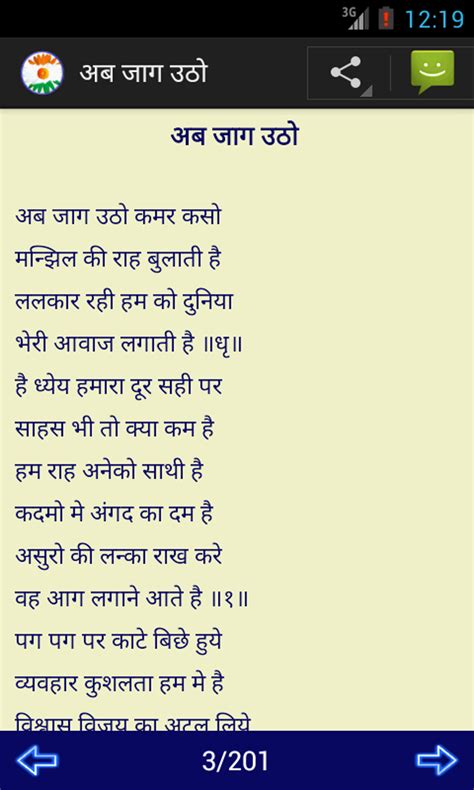 3G 12:19
अब जाग उठो
अब जाग उठो
अब जाग उठो कमर कसो
मन्झिल की राह बुलाती है
ललकार रही हम को दुनिया
भेरी आवाज लगाती है ॥धृ॥
है ध्येय हमारा दूर सही पर
साहस भी तो क्या कम है
हम राह अनेको साथी है
कदमो मे अंगद का दम है
असुरो की लन्का राख करे
वह आग लगाने आते है ॥१॥
पग पग पर काटे बिछे हुये
व्यवहार कुशलता हम मे है
विश्वास विजय का अटल लिये
3/201